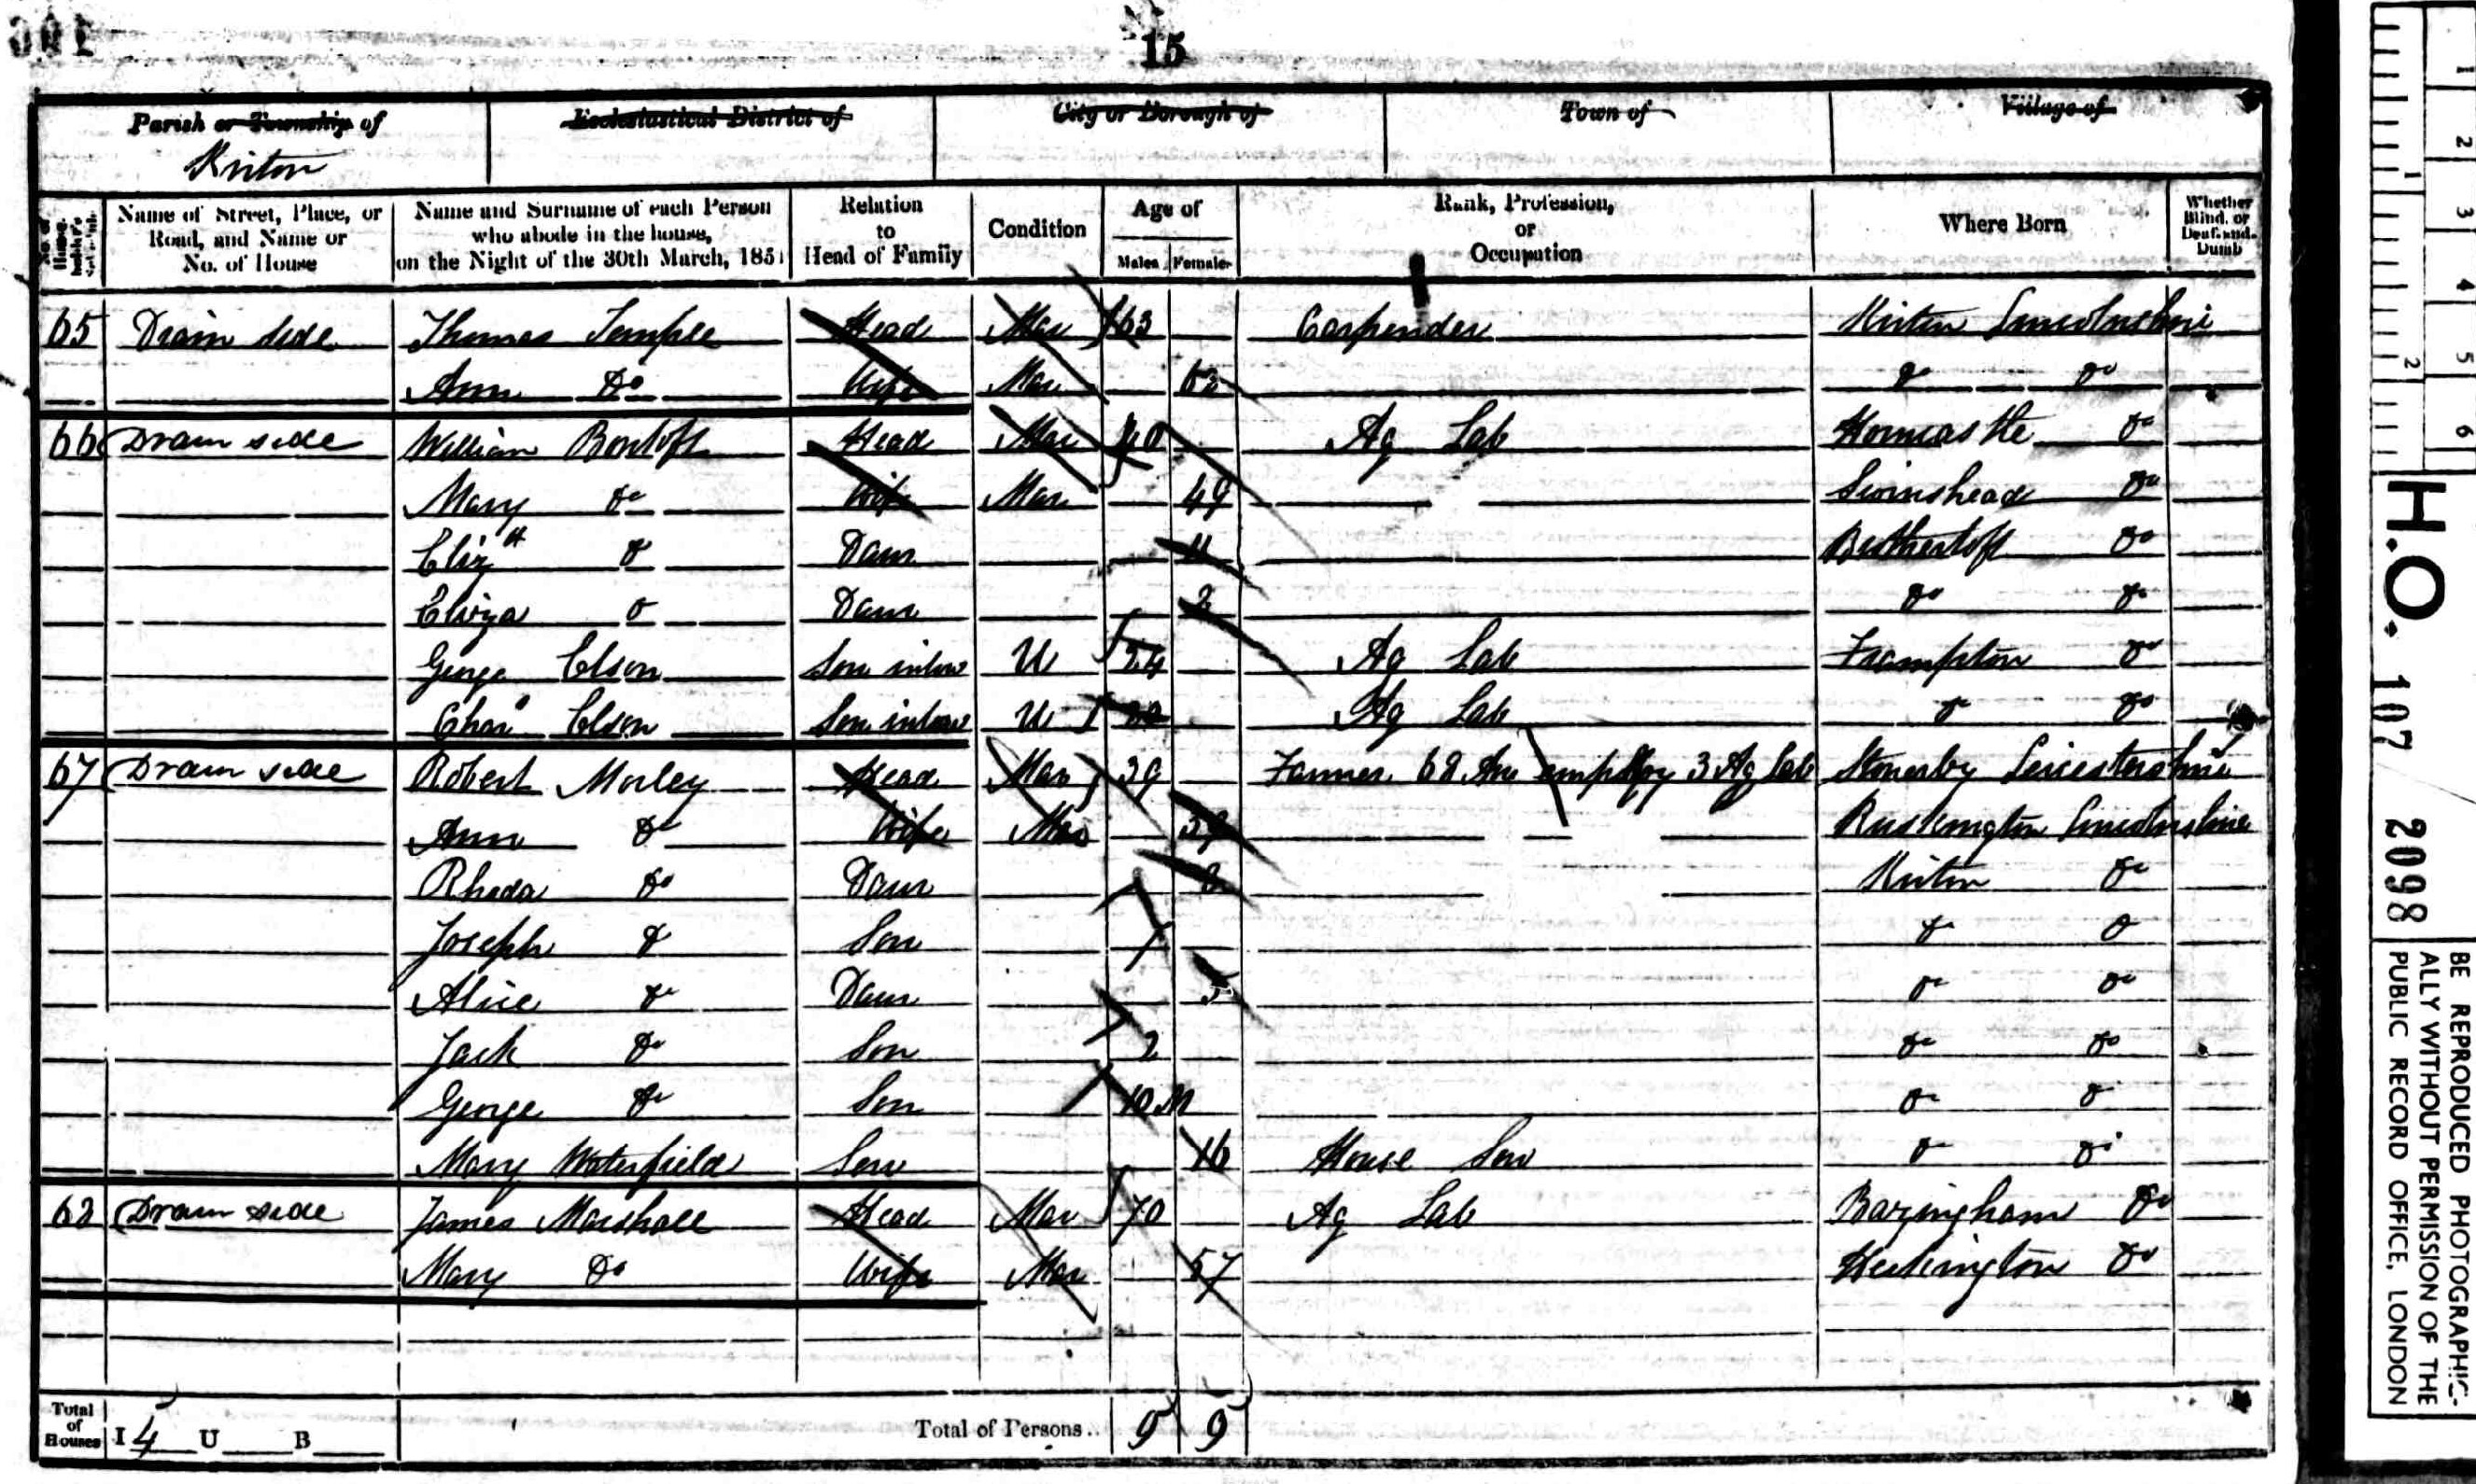 15
Parish or Township of Ecclesiastical District of City or Borough of Town of Village of
Kirton
No. of House-holder's Schedule Name of Street, Place, or Road, and Name or No. of House Name and Surname of each Person who abode in the house, on the Night of the 30th March, 1851 Relation to Head of Family Condition Age of Males Females Rank, Profession, or Occupation Where Born Whether Blind, or Deaf-and-Dumb
65 Drain side Thomas Temple Head Mar 63 Carpender Kirton Lincolnshire
Ann Do Wife Mar 62 Do Do
66 Drain side William Bontoft Head Mar 40 Ag Lab Horncastle Do
Mary Do Wife Mar 49 Swinshead Do
Elizth Do Daur 11 Bothertoft Do
Eliza Do Daur 2 Do Do
George Elson Son inlaw U 24 Ag Lab Frampton Do
Chas Elson Son inlaw U Ag Lab Do Do
67 Drain side Robert Morley Head Mar 39 Farmer 68 Acre employ 3 Ag Lab Stonesby Leicestershire
Ann Do Wife Mar 39 Ruskington Lincolnshire
Rhoda Do Daur 8 Kirton Do
Joseph Do Son 7 Do Do
Alice Do Daur 5 Do Do
Jack Do Son 2 Do Do
George Do Son 10 M Do Do
Mary Waterfield Serv 16 House Serv Do Do
68 Drain side James Marshall Head Mar 70 Ag Lab Bazingham Do
Mary Do Wife Mar 57 Heckington Do
Total of Houses I 4 U B Total of Persons.. 9 9
1 2 3 4 5 6
1 2
H.O. 107 2098
BE REPRODUCED PHOTOGRAPHIC-
ALLY WITHOUT PERMISSION OF THE
PUBLIC RECORD OFFICE, LONDON